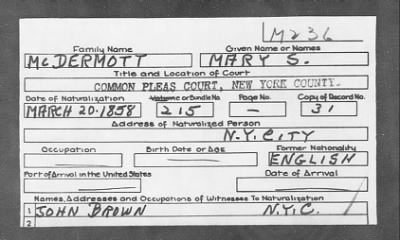 M236
Family Name Given Name or Names
McDERMOTT MARY S.
Title and Location of Court
COMMON PLEAS COURT, NEW YORK COUNTY.
Date of Naturalization Volume or Bundle No. Page No. Copy of Record No.
MARCH 20·1858 215 — 31
Address of Naturalized Person
N.Y. CITY
Occupation Birth Date or Age Former Nationality
ENGLISH
Port of Arrival in the United States Date of Arrival
Names, Addresses and Occupations of Witnesses To Naturalization
1 JOHN BROWN N.Y.C.
2